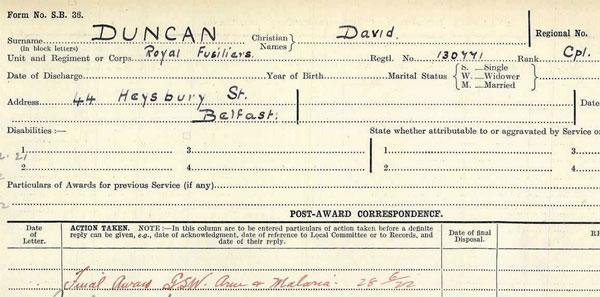 Form No. S.B. 36.
Surname DUNCAN Christian Names} David. Regional No.
(in block letters)
Unit and Regiment or Corps Royal Fusiliers. Regtl. No. 130771 Rank Cpl.
Date of Discharge Year of Birth Marital Status { S. Single W. Widower M. Married
Address 44 Heysbury St. Date
Belfast.
Disabilities :— State whether attributable to or aggravated by Service o
1. 3. 1. 3.
2. 4. 2. 4.
Particulars of Awards for previous Service (if any)
POST-AWARD CORRESPONDENCE.
Date of Letter. ACTION TAKEN. NOTE :—In this column are to be entered particulars of action taken before a definite reply can be given, e.g., date of acknowledgment, date of reference to Local Committee or to Records, and date of their reply. Date of final Disposal. RE
Final Award G.S.W. Arm & Malaria. 28/6/22